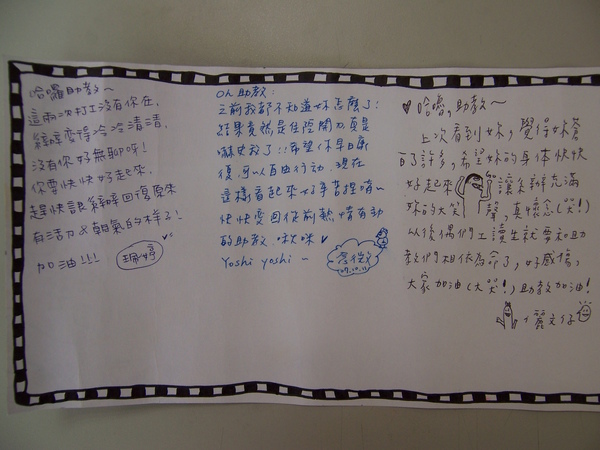 哈囉助教～
這兩次打工沒有你在,
縤辦變得冷冷清清,
沒有你好無聊呀!
你要快快好起來,
趕快讓縤辦回復原來
有活力&朝氣的樣子!
加油!!! 珮婷
Oh 助教:
之前我都不知道妳怎麼了!
結果竟然是住院開刀,真是
嚇史我了!!希望你早日康
復,可以自由行動,現在
這樣看起來好辛苦捏唷~
快快變回從前熱情有勁
的助教 啾咪
Yoshi yoshi ~
07.10.11
♥哈嚕,助教～
上次看到妳,覺得妳蒼
白了許多,希望妳的身体快快
好起來 讓系辦充滿
妳的大笑聲,真懷念(哭!)
以後偶們工讀生就要和助
教們相依為命了,好感傷,
大家加油(大哭!),助教加油!